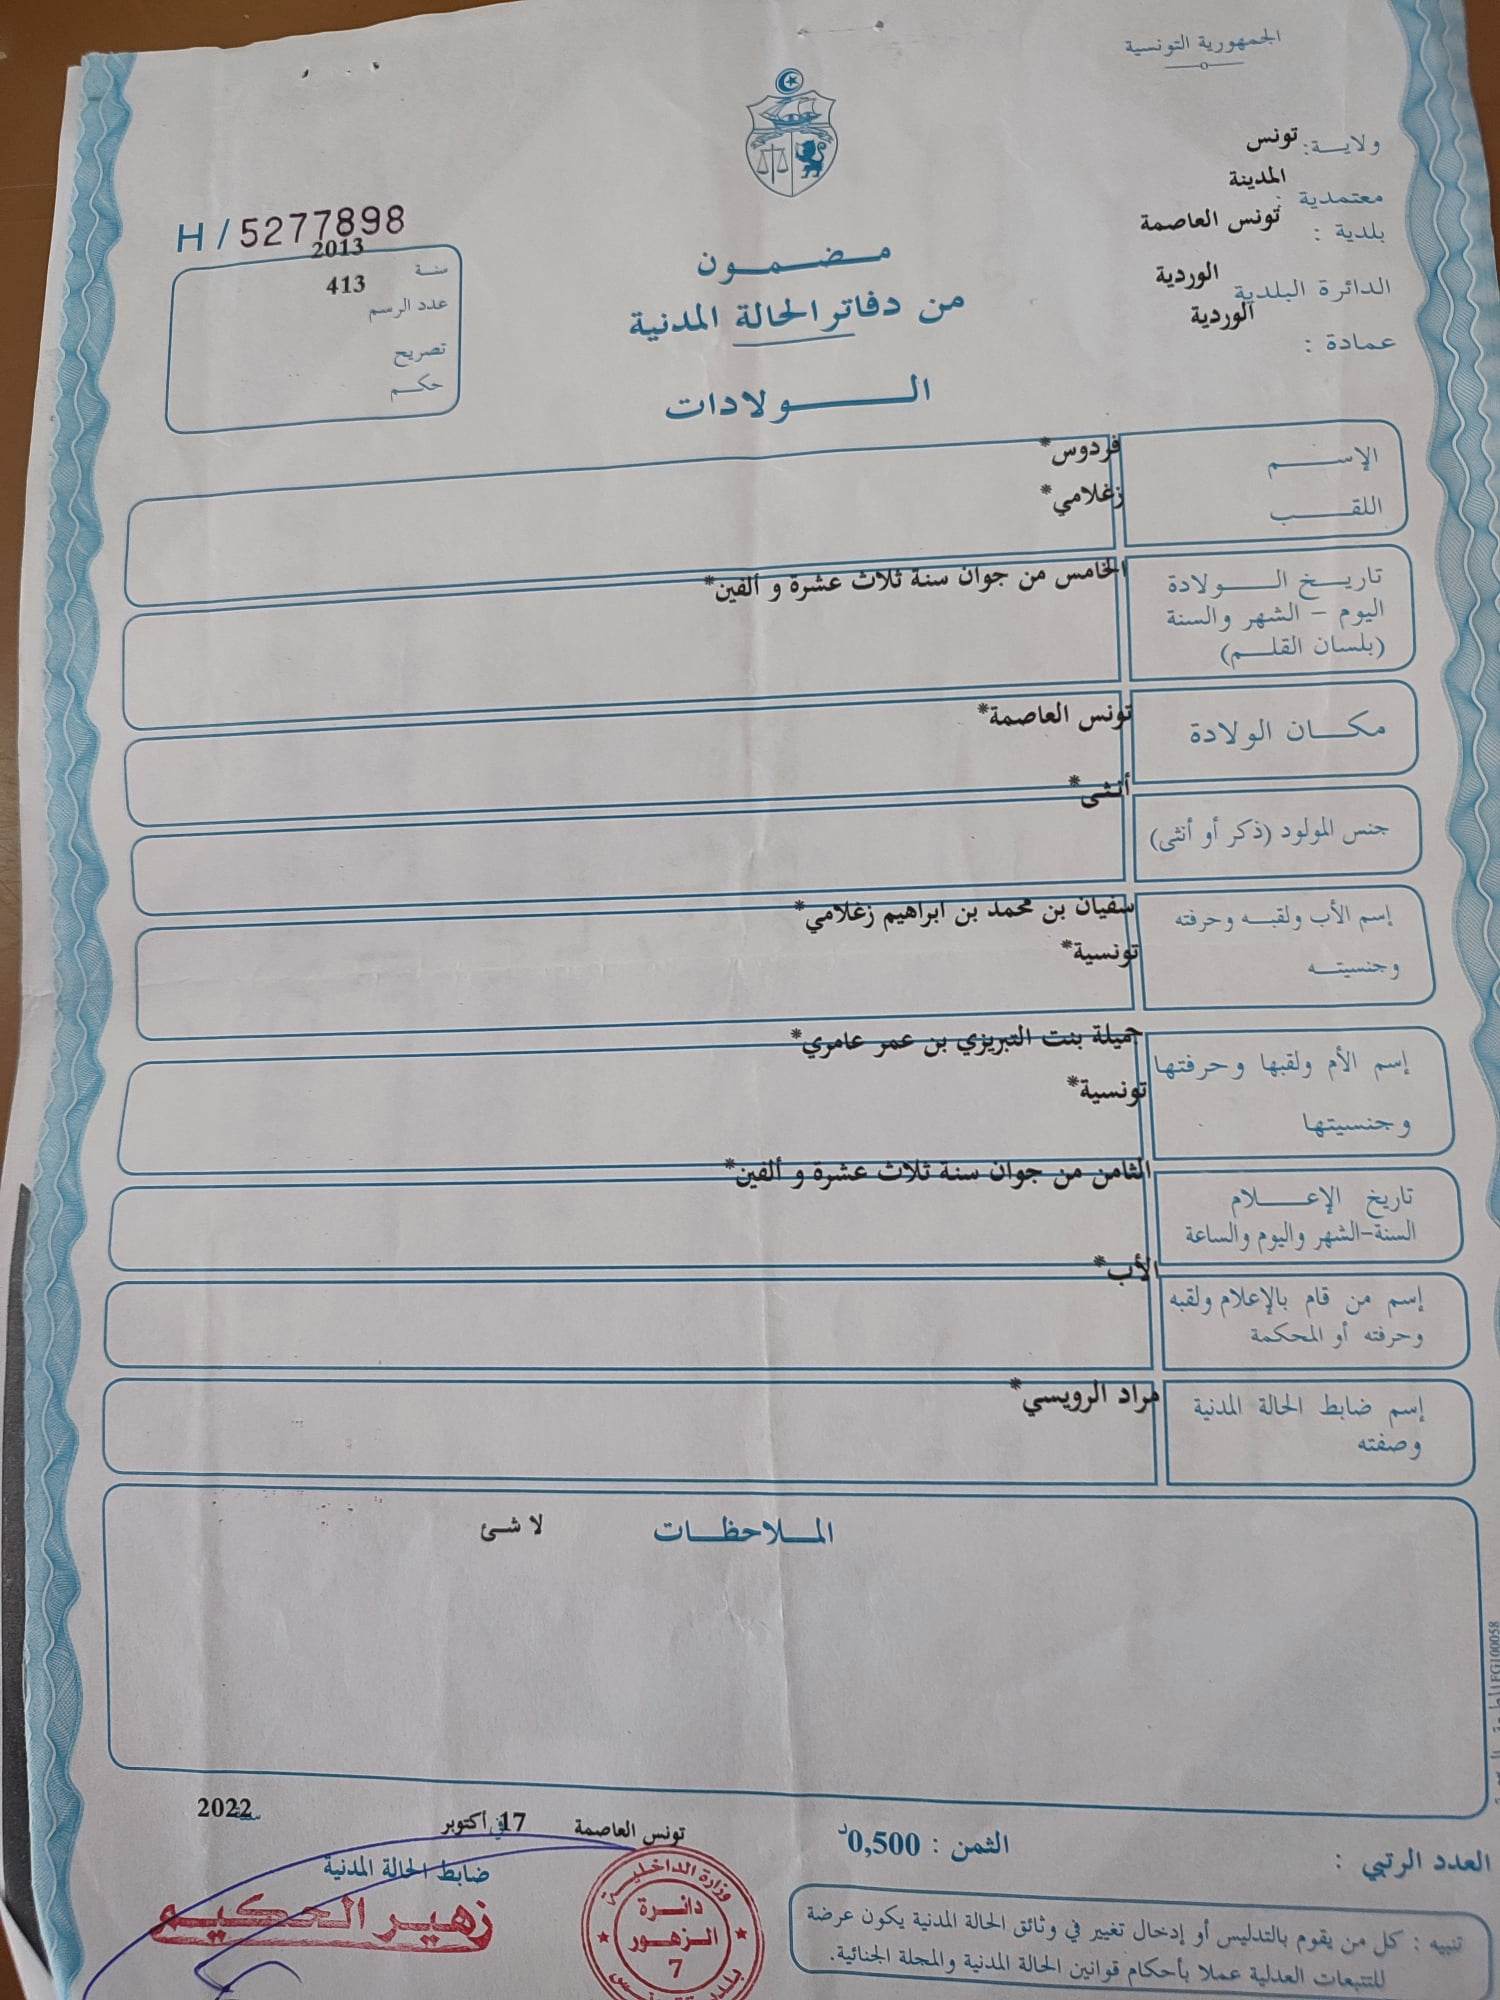 الجمهورية التونسية
ولاية: تونس
معتمدية : المدينة
بلدية : تونس العاصمة
الدائرة البلدية الوردية
عمادة : الوردية
H / 5277898
سنة 2013
عدد الرسم 413
تصريح
حكم
مضمون
من دفاتر الحالة المدنية
الولادات
الإسم فردوس*
اللقب زغلامي*
تاريخ الولادة الخامس من جوان سنة ثلاث عشرة و ألفين*
اليوم - الشهر والسنة
(بلسان القلم)
مكان الولادة تونس العاصمة*
جنس المولود (ذكر أو أنثى) أنثى*
إسم الأب ولقبه وحرفته سفيان بن محمد بن ابراهيم زغلامي*
وجنسيته تونسية*
إسم الأم ولقبها وحرفتها جميلة بنت التبريزي بن عمر عامري*
وجنسيتها تونسية*
تاريخ الإعلام الثامن من جوان سنة ثلاث عشرة و ألفين*
السنة-الشهر واليوم والساعة
إسم من قام بالإعلام ولقبه الأب*
وحرفته أو المحكمة
إسم ضابط الحالة المدنية مراد الرويسي*
وصفته
الملاحظات لا شئ
تونس العاصمة في 17 أكتوبر سنة 2022
العدد الرتبي :
الثمن : 0,500د
ضابط الحالة المدنية
زهير الحكيم
وزارة الداخلية
دائرة
الزهور
7
تنبيه : كل من يقوم بالتدليس أو إدخال تغيير في وثائق الحالة المدنية يكون عرضة
للتتبعات العدلية عملا بأحكام قوانين الحالة المدنية والمجلة الجنائية.